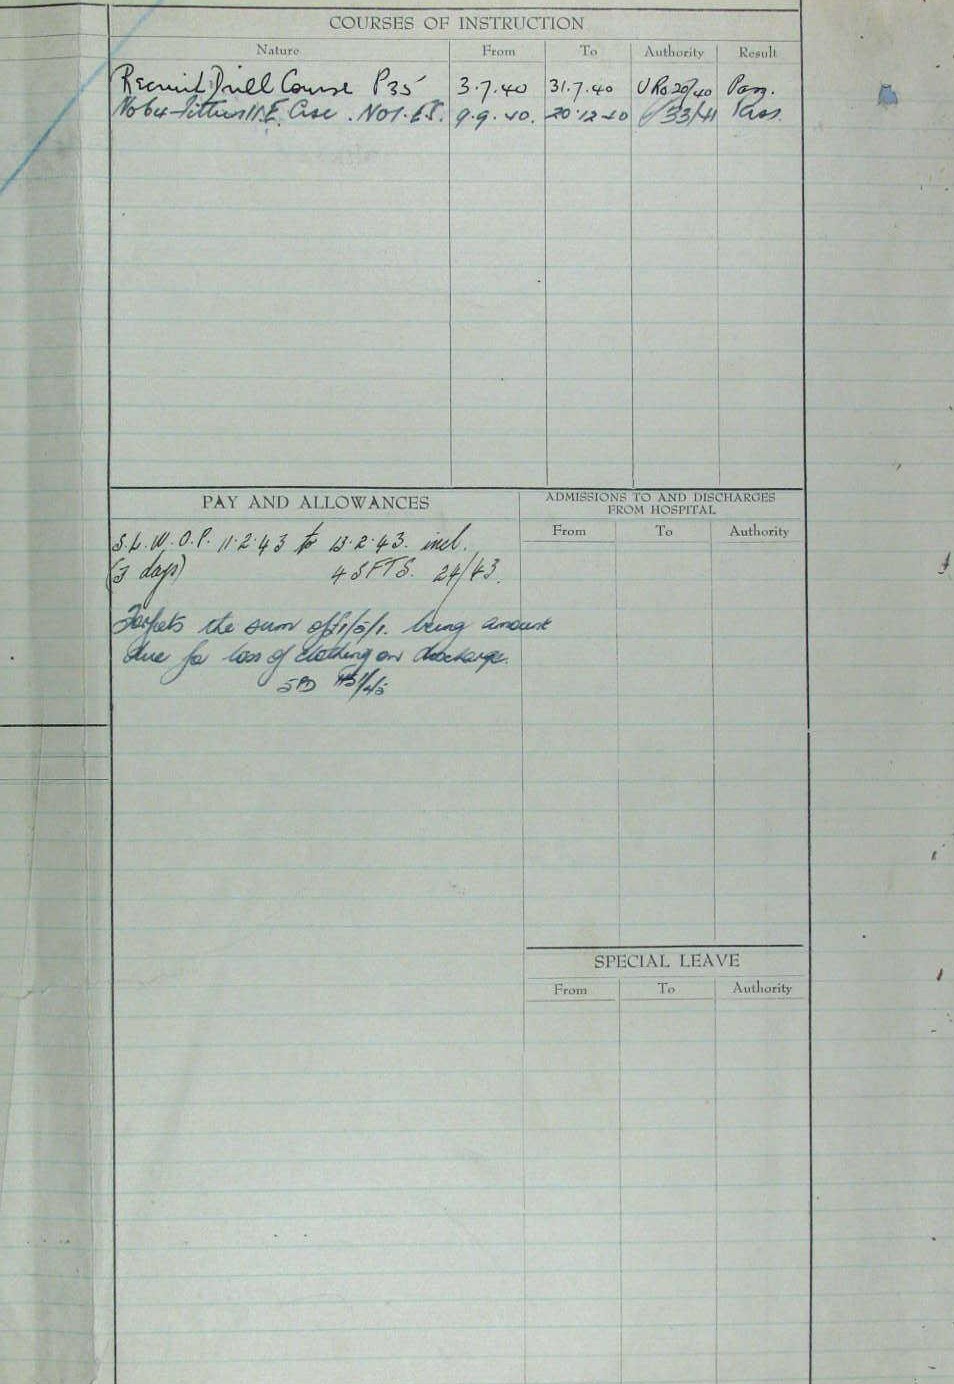 COURSES OF INSTRUCTION
Nature From To Authority Result
Recruit Drill Course P35 3.7.40 31.7.40 URO 20/40 Pass.
No 64 Fitters II.E. Crse. No 1. E.S. 9.9.40. 20.12.40 /33/41 Pass.
PAY AND ALLOWANCES
ADMISSIONS TO AND DISCHARGES
FROM HOSPITAL
From To Authority
S.L.W.O.P. 11.2.43 to 13.2.43. incl.
(3 days) 4 SFTS. 24/43.
Forfeits the sum of £1/5/1. being amount
due for loss of clothing on discharge.
5PD
SPECIAL LEAVE
From To Authority